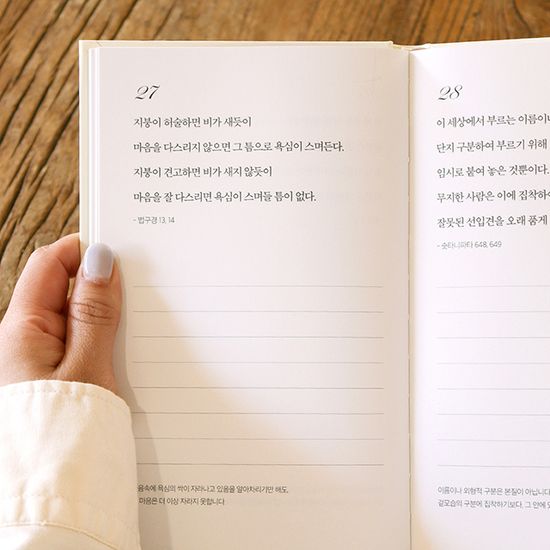 27
지붕이 허술하면 비가 새듯이
마음을 다스리지 않으면 그 틈으로 욕심이 스며든다.
지붕이 견고하면 비가 새지 않듯이
마음을 잘 다스리면 욕심이 스며들 틈이 없다.
- 법구경 13, 14
음속에 욕심의 싹이 자라나고 있음을 알아차리기만 해도,
마음은 더 이상 자라지 못합니다.
28
이 세상에서 부르는 이름이나
단지 구분하여 부르기 위해
임시로 붙여 놓은 것뿐이다.
무지한 사람은 이에 집착하여
잘못된 선입견을 오래 품게
- 숫타니파타 648, 649
이름이나 외형적 구분은 본질이 아닙니다
겉모습의 구분에 집착하기보다, 그 안에